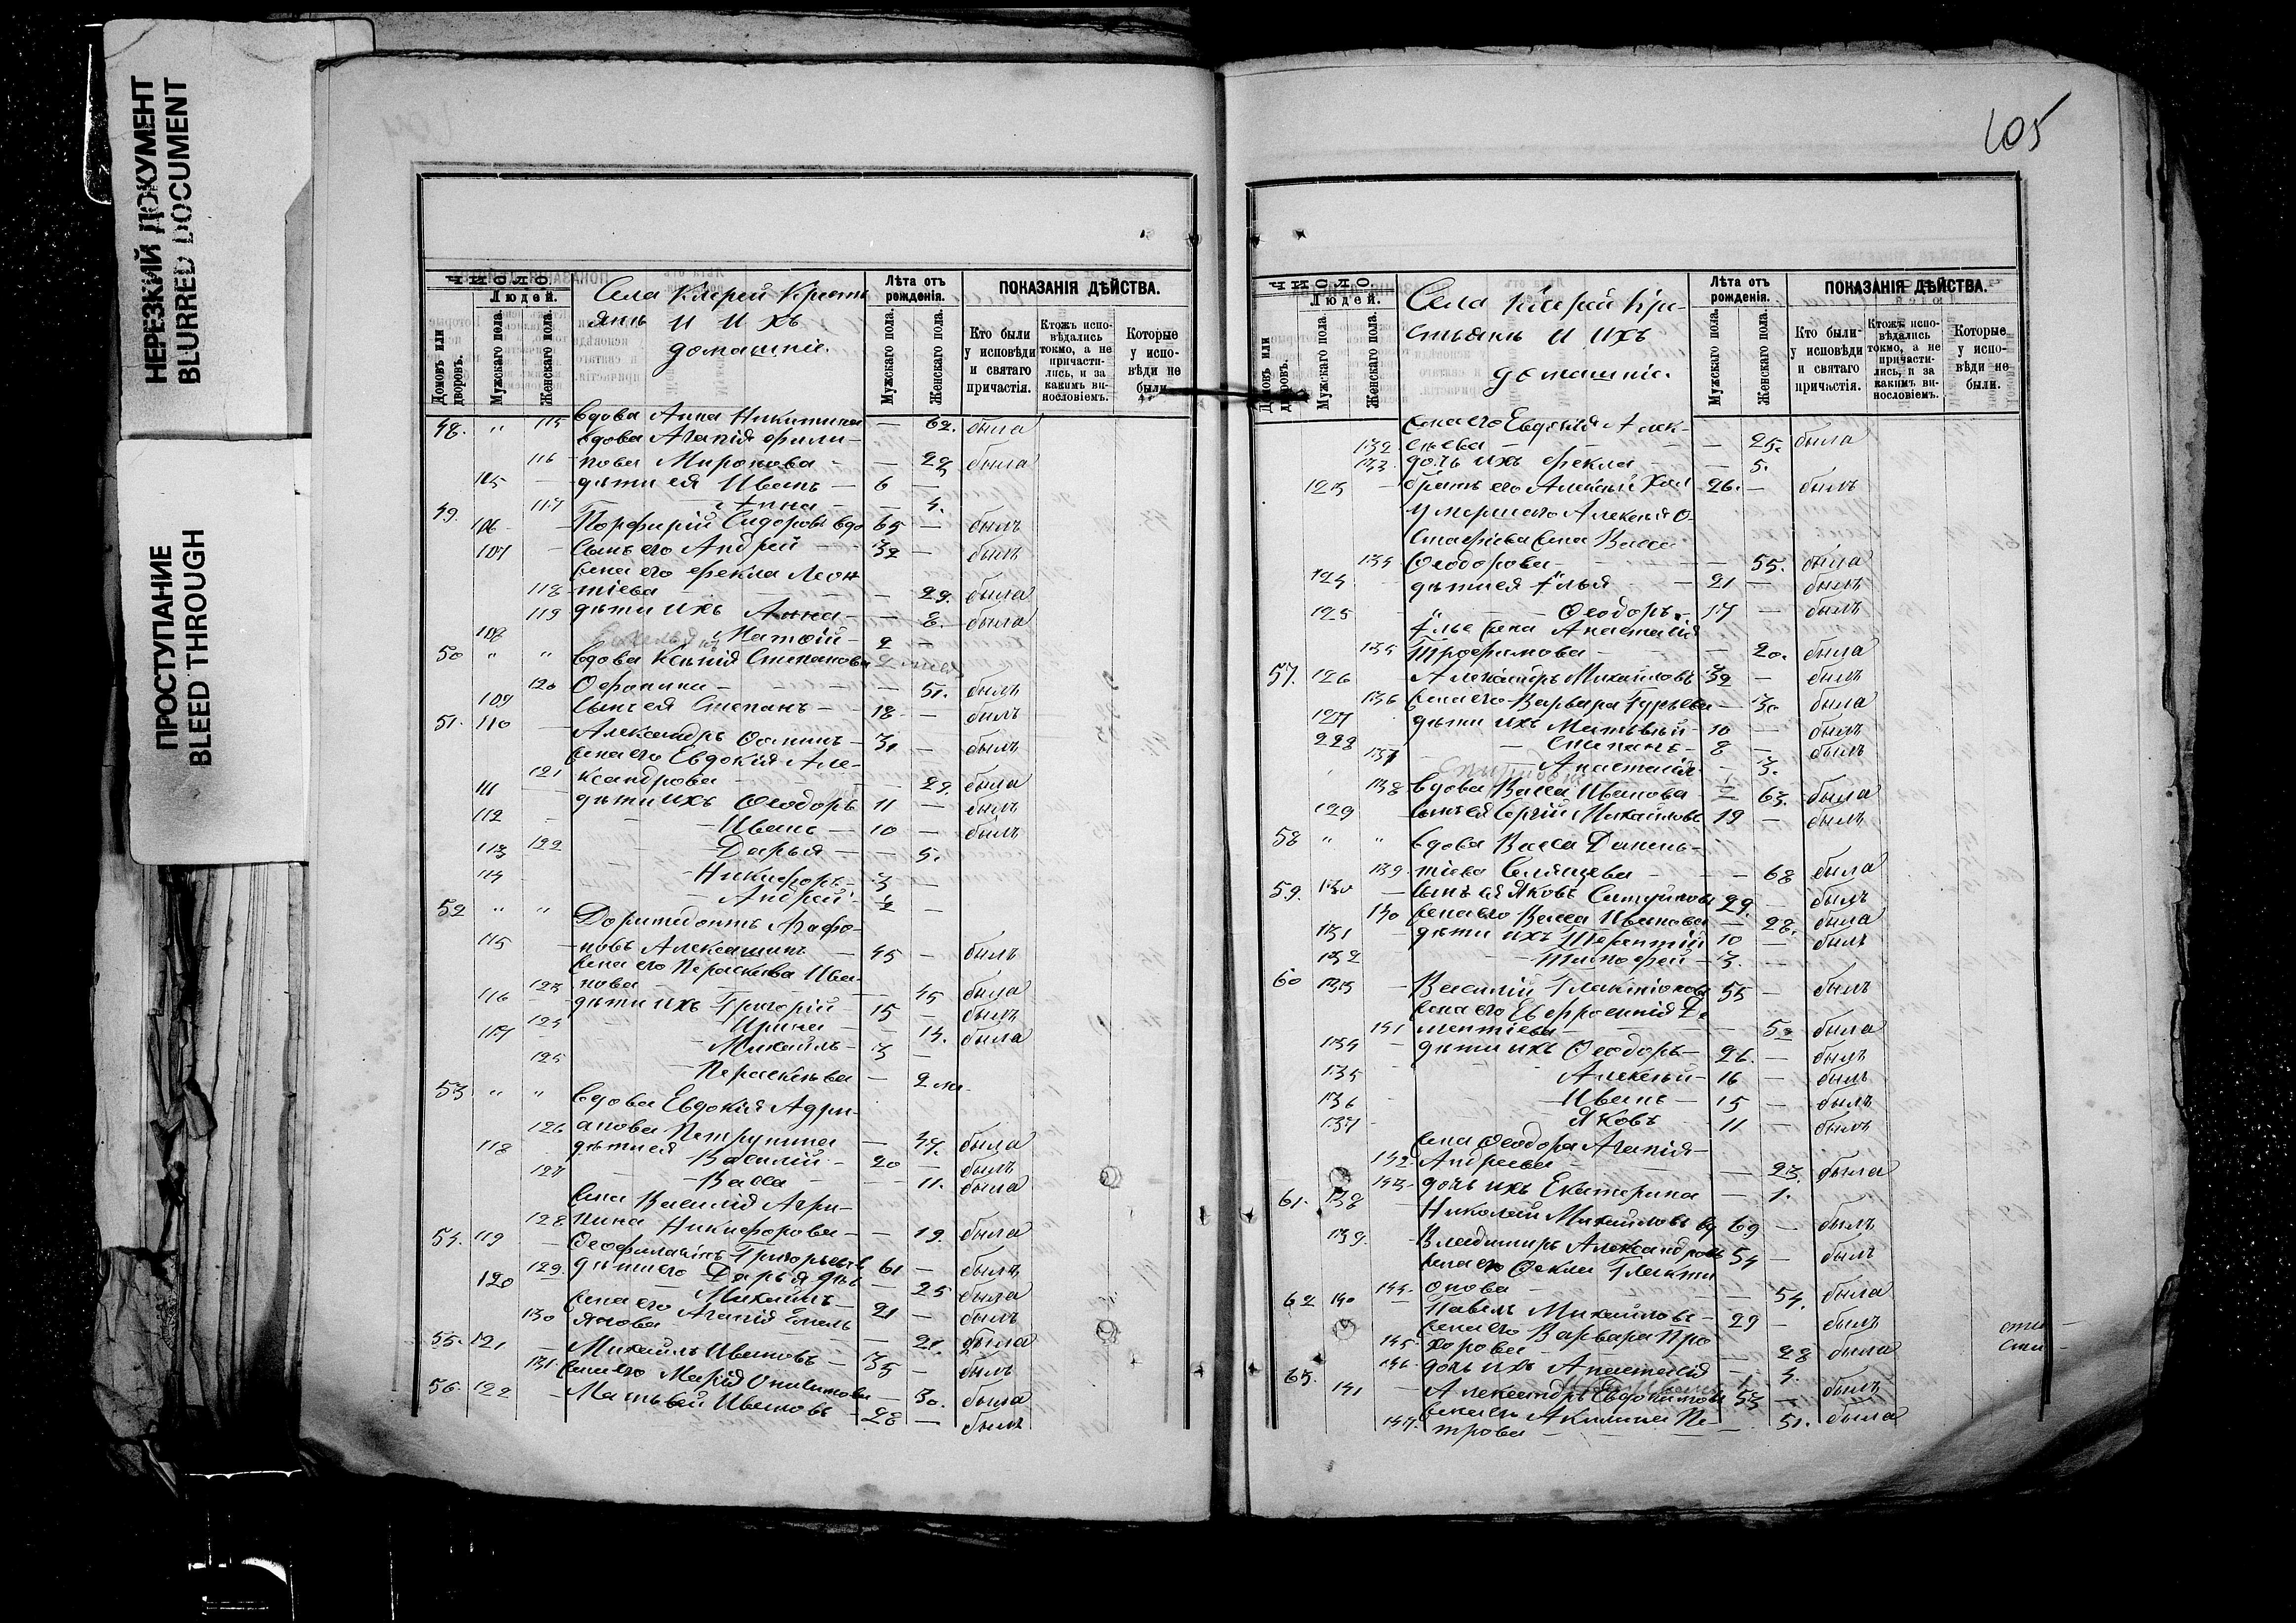 НЕРЕЗКИЙ ДОКУМЕНТ
BLURRED DOCUMENT
ПРОСТУПАНИЕ
BLEED THROUGH
ЧИСЛО
Людей.
Домовъ или дворовъ.
Мужскаго пола.
Женскаго пола.
Села Клерей Крестьянъ и ихъ домашніе.
Лѣта отъ рожденія.
Мужскаго пола.
Женскаго пола.
ПОКАЗАНІЯ ДѢЙСТВА.
Кто были у исповѣди и святаго причастія.
Ктожъ исповѣдались токмо, а не причастились, и за какимъ винословіемъ.
Которые у исповѣди не были.
48. " 115 вдова Анна Никитина — 62. была
вдова Агапія Филипова
116 Миронова — была
дѣти ея Иванъ — 6 —
117 Анна — 4.
49. 106 Порфирій Сидоровъ вдо 65 — былъ
107 Сынъ его Андрей — 32 — былъ
жена его Фекла Леон
118 тіева — 29. была
119 дѣти ихъ Анна — 8. была
108 Матѳій — 2 —
50 " " вдова Ксенія Степанова
120 — 51.
109 Сынъ ея Степанъ — 18 — былъ
51. 110 Александръ Ѳоминъ — 31 — былъ
жена его Евдокія Але-
121 ксандрова — 29. была
111 дѣти ихъ Ѳеодоръ 11 — былъ
112 Иванъ — 10 — былъ
113 122 Дарья — 5.
114 Никифоръ — 3 —
Андрей —
52 " " Доримедонтъ Агафо-
115 новъ — 45 — былъ
жена его Параскева Ива-
123 нова — 45 была
116 дѣти ихъ Григорій — 15 — былъ
124 Ирина — 14. была
117 Михаилъ — 3 —
125 Параскева — 2 м.
53. " " вдова Евдокія Адри-
126 анова Петрунина — 47. была
118 дѣти ея Василій — 20 — былъ
127 Васса — 11. была
жена Василія Агри-
128 пина Никифорова — 19. была
54. 119 Ѳеофилактъ Григорьевъ 61 — былъ
129. дѣти его Дарья — 25 была
120 Михаилъ — 21 — былъ
130 жена его Агапія — 21. была
55. 121 Михаилъ Ивановъ — 35 — былъ
131. жена его Марія — 30. была
56. 122 Матвей Ивановъ — 28 — былъ
105
ЧИСЛО
Людей.
Домовъ или дворовъ.
Мужскаго пола.
Женскаго пола.
Села Клерей Кре-
стьянъ и ихъ
домашніе.
Лѣта отъ рожденія.
Мужскаго пола.
Женскаго пола.
ПОКАЗАНІЯ ДѢЙСТВА.
Кто были у исповѣди и святаго причастія.
Ктожъ исповѣдались токмо, а не причастились, и за какимъ винословіемъ.
Которые у исповѣди не были.
жена его Евдокія Алек-
132 сѣева — 25. была
133. дочь ихъ Фекла — 5.
123 братъ его Алексѣй 26. — былъ
Умершаго Алексѣя О-
стафьева жена Васса
134 Ѳеодорова — 55. была
124 дѣти ея Илья — 21 — былъ
125 " Ѳеодоръ — 17 — былъ
Ильи жена Анастасія
135 Трофимова — 20. была
57. 126 Александръ Михайловъ 32 — былъ
136 жена его Варвара Гурьева — 30 была
127 дѣти ихъ Матвѣй — 10 — былъ
228 Степанъ — 8 — былъ
137 Анастасія — 3.
138 вдова Васса Иванова — 63. была
129 сынъ ея Сергій Михайловъ 19 — былъ
58 " " вдова Васса Данень-
139. тіева — 68 была
59. 130 Сынъ ея Яковъ 29. — былъ
140 жена его Васса Иванова — 28. была
131 дѣти ихъ Терентій 10 — былъ
132 Тимофей — 3.
60 133 Василій 55 — былъ
жена его Евфросинія
141 ментіева — 52 была
134 дѣти ихъ Ѳеодоръ — 26. — былъ
135 Алексѣй — 16 — былъ
136 Иванъ — 15 — былъ
137 Яковъ 11 — былъ
жена Ѳеодора Агапія
142 Андреева — 23. была
143. дочь ихъ Екатерина — 1.
61. 138 Николай Михайловъ вд 69 — былъ
139. Владиміръ Александровъ 54 — былъ
жена его Ѳекла Галакти
144. онова — 54. была
62 140 Павелъ Михайловъ — 29 — былъ
жена его Варвара Про
145. хорова — 28 была
146. дочь ихъ Анастасія — 4.
63. 141 Александръ Евдокимовъ 53 — былъ
жена его Акилина Пе
147. трова — 51. была